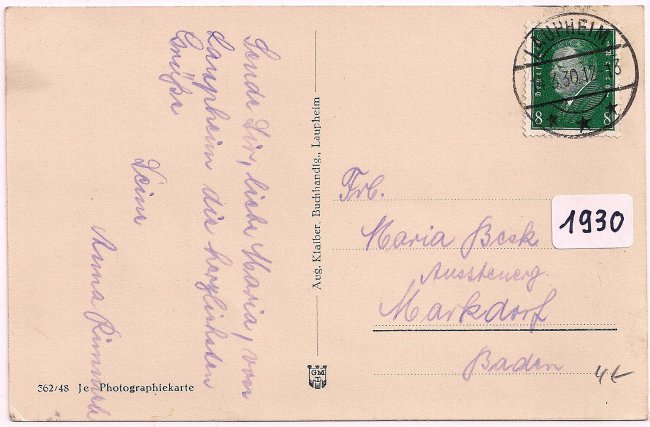 Sende Dir, liebe Maria, von
Laupheim die herzlichsten
Grüße
Deine
Anna
362/48 Je Photographiekarte
Aug. Klaiber, Buchhandlg., Laupheim
LAUPHEIM
3.30.12
8 8
Frl.
Maria Beck
Aussteuerg.
Markdorf
Baden
1930
GM
4€